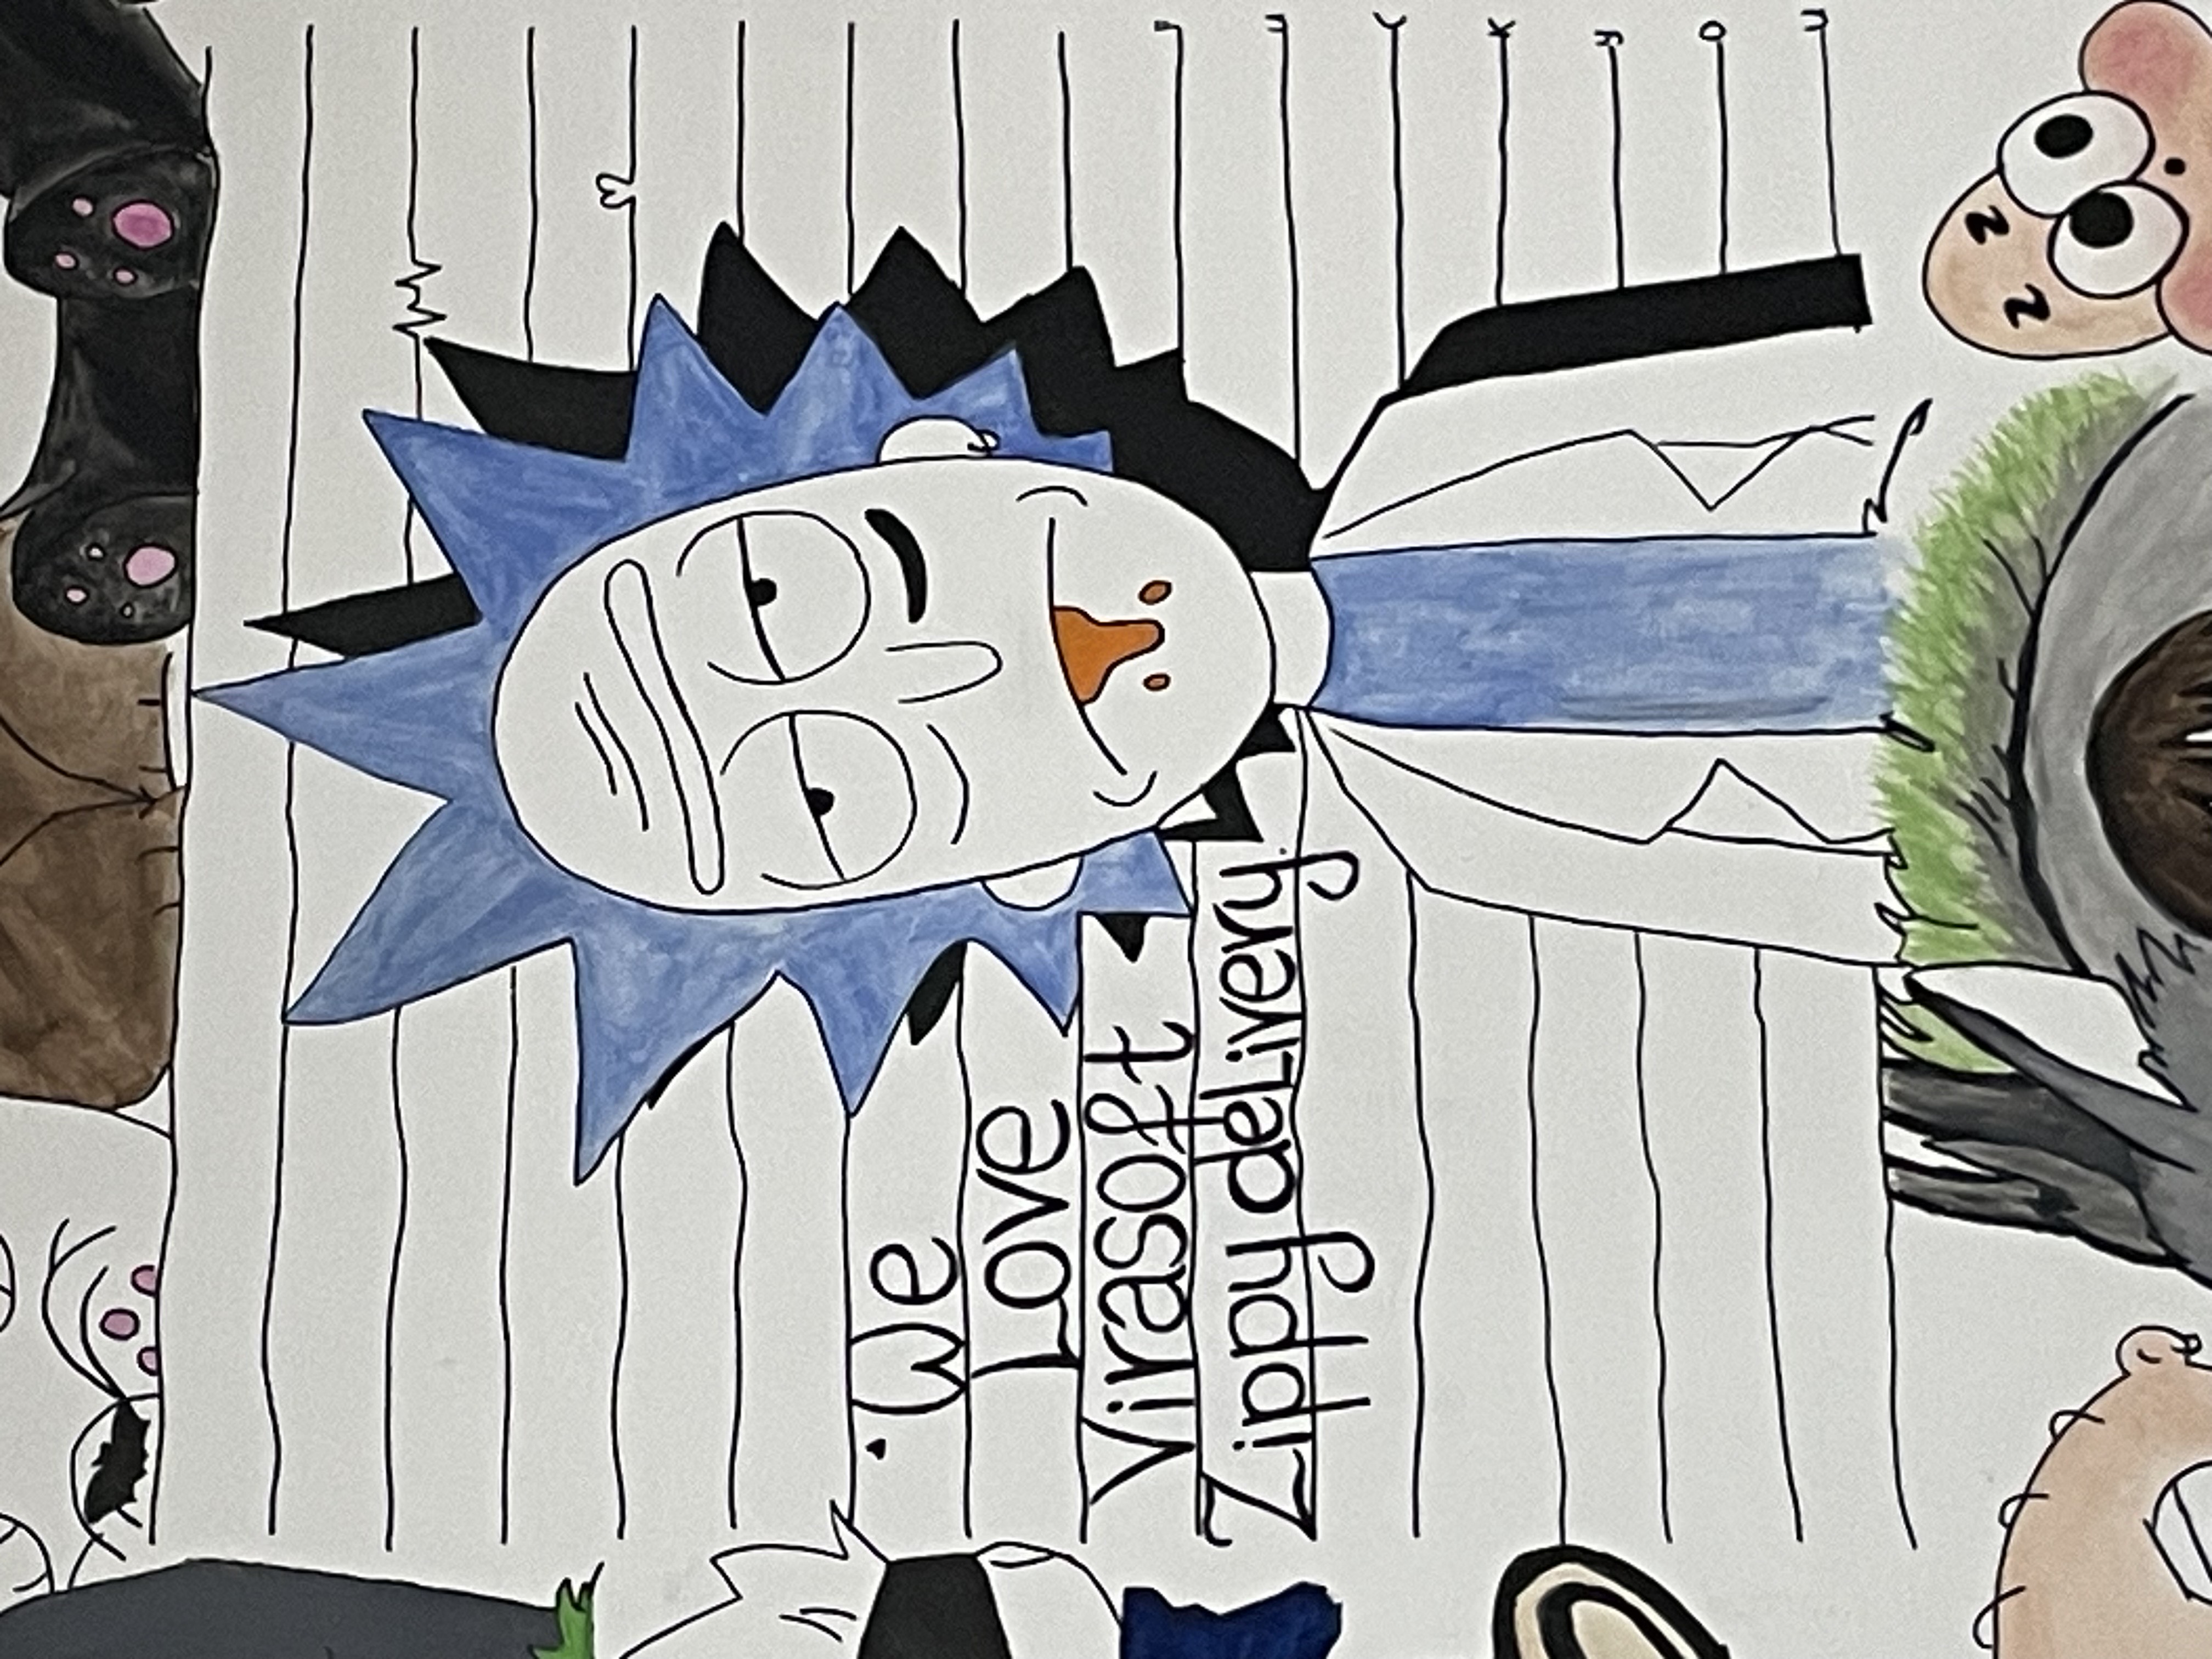 We
Love
Virasoft
Zippy deLivery.
z z
u
K
y
o
u